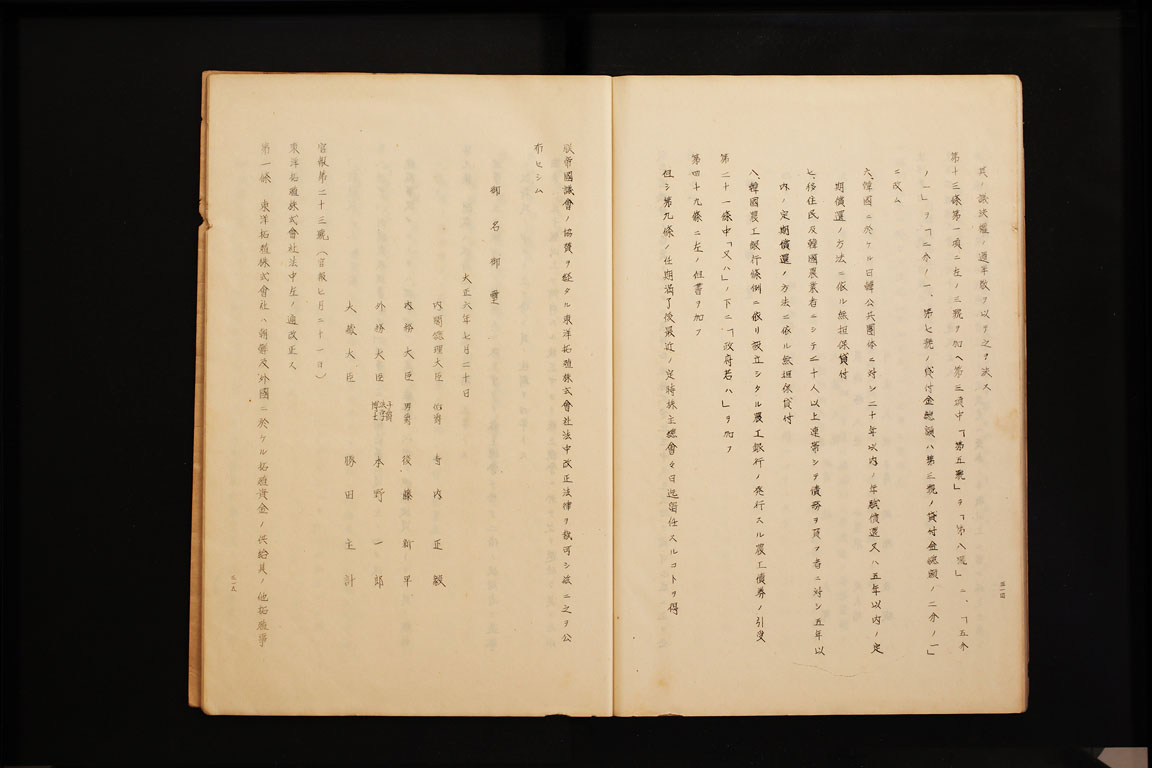 其ノ議決權ノ過半數ヲ以テ之ヲ決ス
第十三條第一項ニ左ノ三號ヲ加ヘ第三項中「第五號」ヲ「第八號」ニ、「五分
ノ一」ヲ「二分ノ一、第七號ノ貸付金總額ハ第三號ノ貸付金總額ノ二分ノ一」
ニ改ム
六、韓國ニ於ケル日韓公共團體ニ対シ二十年以内ノ年賦償還又ハ五年以内ノ定
期償還ノ方法ニ依ル無担保貸付
七、移住民及韓國農業者ニシテ二十人以上連帯シテ債務ヲ負フ者ニ対シ五年以
内ノ定期償還ノ方法ニ依ル無担保貸付
八、韓國農工銀行條例ニ依リ設立シタル農工銀行ノ発行スル農工債券ノ引受
第二十一條中「又ハ」ノ下ニ「政府若ハ」ヲ加フ
第四十九條ニ左ノ但書ヲ加フ
但シ第九條ノ任期満了後最近ノ定時株主總會ノ日迄留任スルコトヲ得
五一四
朕帝國議會ノ協賛ヲ経タル東洋拓殖株式會社法中改正法律ヲ裁可シ茲ニ之ヲ公
布セシム
御名御璽
大正六年七月二十日
内閣總理大臣 伯爵 寺内正毅
内務大臣 男爵 後藤新平
外務大臣 法学博士子爵 本野一郎
大蔵大臣 勝田主計
官報第二十三號(官報七月二十一日)
東洋拓殖株式會社法中左ノ通改正ス
第一條 東洋拓殖株式會社ハ朝鮮及外國ニ於ケル拓殖資金ノ供給其ノ他拓殖事
五一五